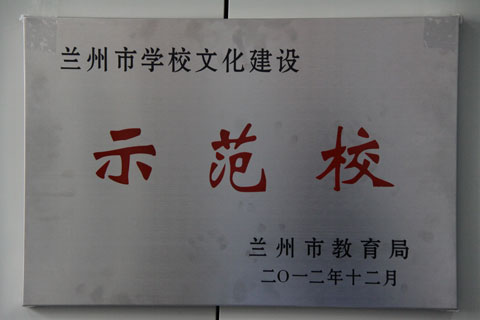 兰州市学校文化建设
示范校
兰州市教育局
二〇一二年十二月